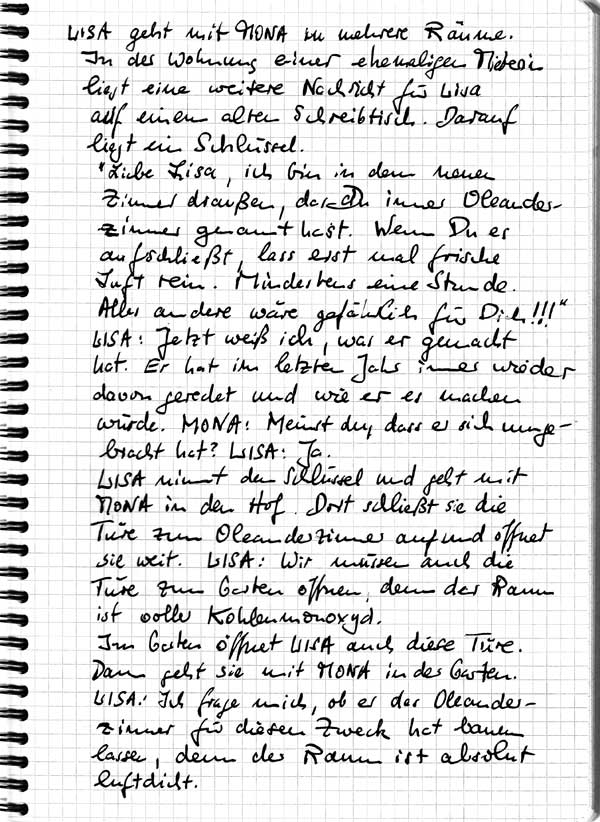 LISA geht mit MONA in mehrere Räume.
In der Wohnung einer ehemaligen Mieterin
liegt eine weitere Nachricht für Lisa
auf einem alten Schreibtisch. Darauf
liegt ein Schlüssel.
"Liebe Lisa, ich bin in dem neuen
Zimmer draußen, das Du immer Oleander-
zimmer genannt hast. Wenn Du es
aufschließt, lass erst mal frische
Luft rein. Mindestens eine Stunde.
Alles andere wäre gefährlich für Dich!!!"
LISA: Jetzt weiß ich, was er gemacht
hat. Er hat im letzten Jahr immer wieder
davon geredet und wie er es machen
würde. MONA: Meinst du, dass er sich umge-
bracht hat? LISA: Ja.
LISA nimmt den Schlüssel und geht mit
MONA in den Hof. Dort schließt sie die
Türe zum Oleanderzimmer auf und öffnet
sie weit. LISA: Wir müssen auch die
Türe zum Garten öffnen, denn der Raum
ist voller Kohlenmonoxyd.
Im Garten öffnet LISA auch diese Türe.
Dann geht sie mit MONA in den Garten.
LISA: Ich frage mich, ob er das Oleander-
zimmer für diesen Zweck hat bauen
lassen, denn der Raum ist absolut
luftdicht.